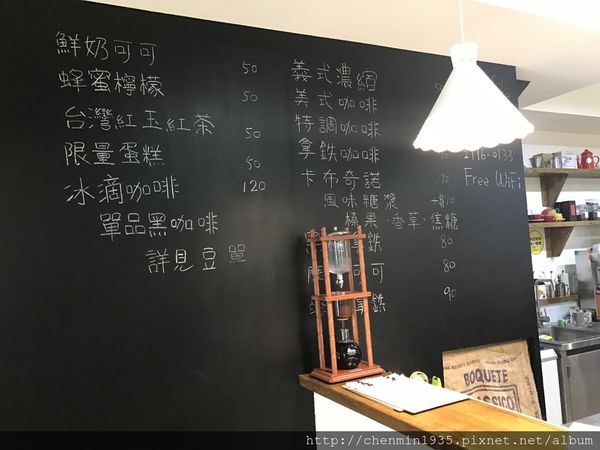 鮮奶可可 50
蜂蜜檸檬 50
台灣紅玉紅茶 50
限量蛋糕 50
冰滴咖啡 120
單品黑咖啡
詳見豆單
義式濃縮
美式咖啡
特調咖啡
拿鐵咖啡
卡布奇諾 70
風味糖漿 +$10
榛果·香草·焦糖
拿鐵 80
可可 80
拿鐵 90
Free WiFi
BOQUETE
http://chenmin1935.pixnet.net/album